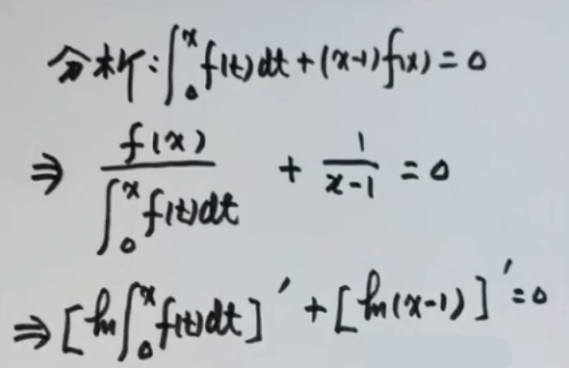 分析:∫₀ˣ f(t)dt+(x-1)f(x)=0
⇒ f(x)/∫₀ˣ f(t)dt + 1/(x-1) = 0
⇒[ln∫₀ˣ f(t)dt]′+[ln(x-1)]′=0